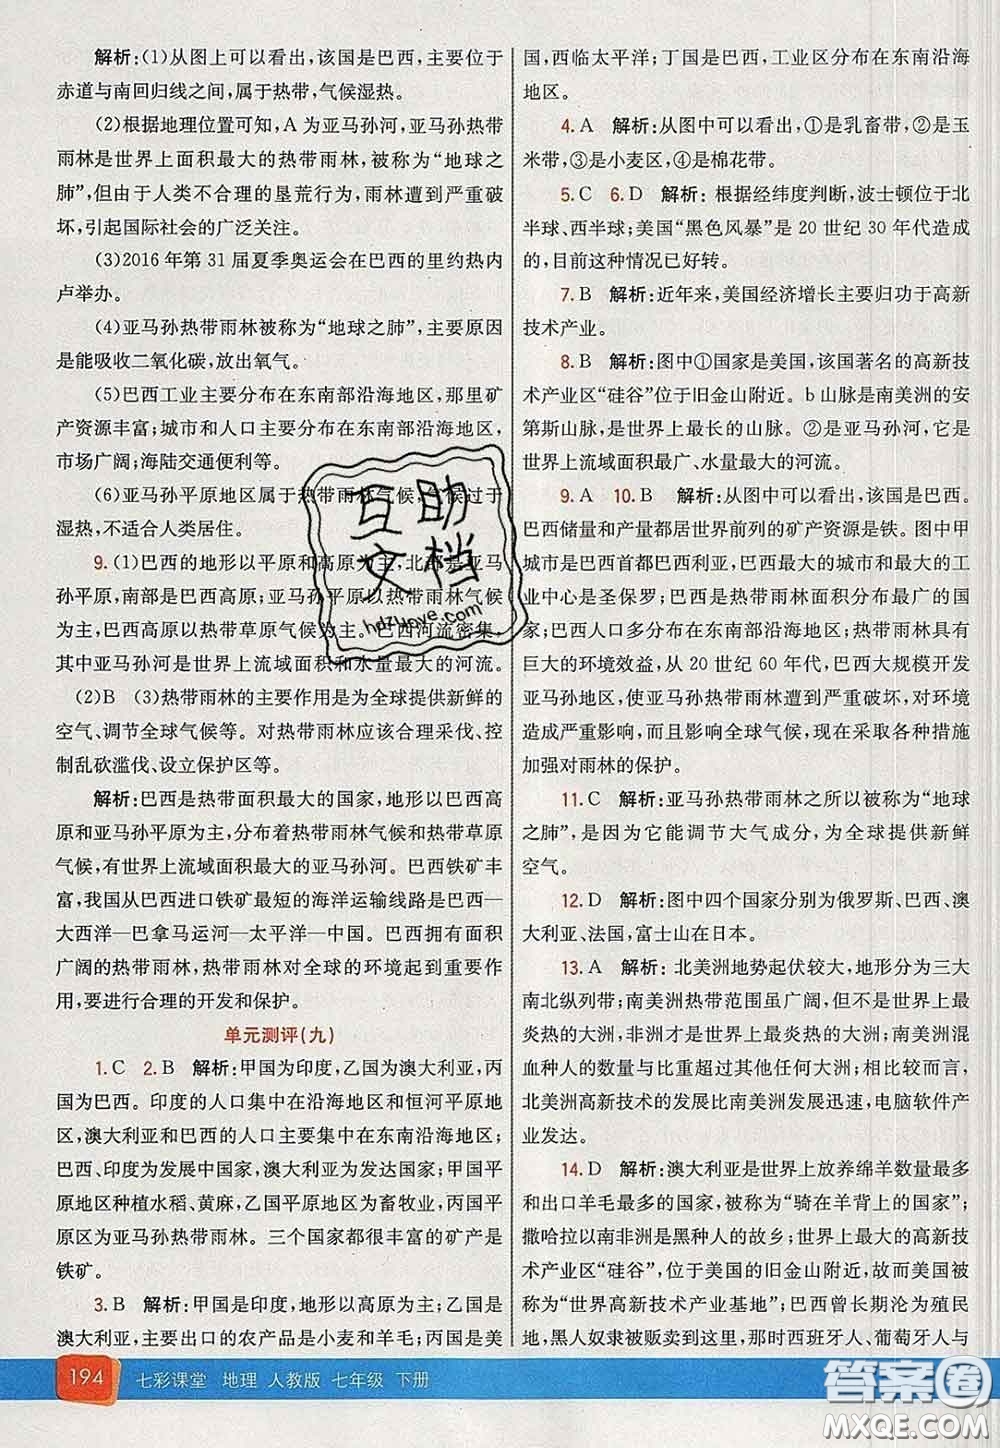 解析:(1)从图上可以看出,该国是巴西,主要位于
赤道与南回归线之间,属于热带,气候湿热。
(2)根据地理位置可知,A 为亚马孙河,亚马孙热带
雨林是世界上面积最大的热带雨林,被称为“地球之
肺”,但由于人类不合理的垦荒行为,雨林遭到严重破
坏,引起国际社会的广泛关注。
(3)2016 年第 31 届夏季奥运会在巴西的里约热内
卢举办。
(4)亚马孙热带雨林被称为“地球之肺”,主要原因
是能吸收二氧化碳,放出氧气。
(5)巴西工业主要分布在东南部沿海地区,那里矿
产资源丰富;城市和人口主要分布在东南部沿海地区,
市场广阔;海陆交通便利等。
(6)亚马孙平原地区属于热带雨林气候,气候过于
湿热,不适合人类居住。
9.(1)巴西的地形以平原和高原为主,北部是亚马
孙平原,南部是巴西高原;亚马孙平原以热带雨林气候
为主,巴西高原以热带草原气候为主。巴西河流密集,
其中亚马孙河是世界上流域面积和水量最大的河流。
(2)B (3)热带雨林的主要作用是为全球提供新鲜的
空气、调节全球气候等。对热带雨林应该合理采伐、控
制乱砍滥伐、设立保护区等。
解析:巴西是热带面积最大的国家,地形以巴西高
原和亚马孙平原为主,分布着热带雨林气候和热带草原
气候,有世界上流域面积最大的亚马孙河。巴西铁矿丰
富,我国从巴西进口铁矿最短的海洋运输线路是巴西—
大西洋—巴拿马运河—太平洋—中国。巴西拥有面积
广阔的热带雨林,热带雨林对全球的环境起到重要作
用,要进行合理的开发和保护。
单元测评(九)
1.C 2.B 解析:甲国为印度,乙国为澳大利亚,丙
国为巴西。印度的人口集中在沿海地区和恒河平原地
区,澳大利亚和巴西的人口主要集中在东南沿海地区;
巴西、印度为发展中国家,澳大利亚为发达国家;甲国平
原地区种植水稻、黄麻,乙国平原地区为畜牧业,丙国平
原区为亚马孙热带雨林。三个国家都很丰富的矿产是
铁矿。
3.B 解析:甲国是印度,地形以高原为主;乙国是
澳大利亚,主要出口的农产品是小麦和羊毛;丙国是美
国,西临太平洋;丁国是巴西,工业区分布在东南沿海
地区。
4.A 解析:从图中可以看出,①是乳畜带,②是玉
米带,③是小麦区,④是棉花带。
5.C 6.D 解析:根据经纬度判断,波士顿位于北
半球、西半球;美国“黑色风暴”是 20 世纪 30 年代造成
的,目前这种情况已好转。
7.B 解析:近年来,美国经济增长主要归功于高新
技术产业。
8.B 解析:图中①国家是美国,该国著名的高新技
术产业区“硅谷”位于旧金山附近。b 山脉是南美洲的安
第斯山脉,是世界上最长的山脉。②是亚马孙河,它是
世界上流域面积最广、水量最大的河流。
9.A 10.B 解析:从图中可以看出,该国是巴西。
巴西储量和产量都居世界前列的矿产资源是铁。图中甲
城市是巴西首都巴西利亚,巴西最大的城市和最大的工
业中心是圣保罗;巴西是热带雨林面积分布最广的国
家;巴西人口多分布在东南沿海地区;热带雨林具有
巨大的环境效益,从 20 世纪 60 年代,巴西大规模开发
亚马孙地区,使亚马孙热带雨林遭到严重破坏,对环境
造成严重影响,而且影响全球气候,现在采取各种措施
加强对雨林的保护。
11.C 解析:亚马孙热带雨林之所以被称为“地球
之肺”,是因为它能调节大气成分,为全球提供新鲜
空气。
12.D 解析:图中四个国家分别为俄罗斯、巴西、澳
大利亚、法国,富士山在日本。
13.A 解析:北美洲地势起伏较大,地形分为三大
南北纵列带;南美洲热带范围虽广阔,但不是世界上最
炎热的大洲,非洲才是世界上最炎热的大洲;南美洲混
血种人的数量与比重超过世界其他大洲;相比较而言,
北美洲高新技术的发展比南美洲发展迅速,电脑软件产
业发达。
14.D 解析:澳大利亚是世界上放养绵羊数量最多
和出口羊毛最多的国家,被称为“骑在羊背上的国家”;
撒哈拉以南非洲是黑种人的故乡;世界上最大的高新技
术产业区“硅谷”,位于美国的旧金山附近,故而美国被
称为“世界高新技术产业基地”;巴西曾长期沦为殖民
地,黑人奴隶被贩卖到这里,那时西班牙人、葡萄牙人与
互助
文档
hdzuoye.com
194 七彩课堂 地理 人教版 七年级 下册
答案圈
MXQE.COM